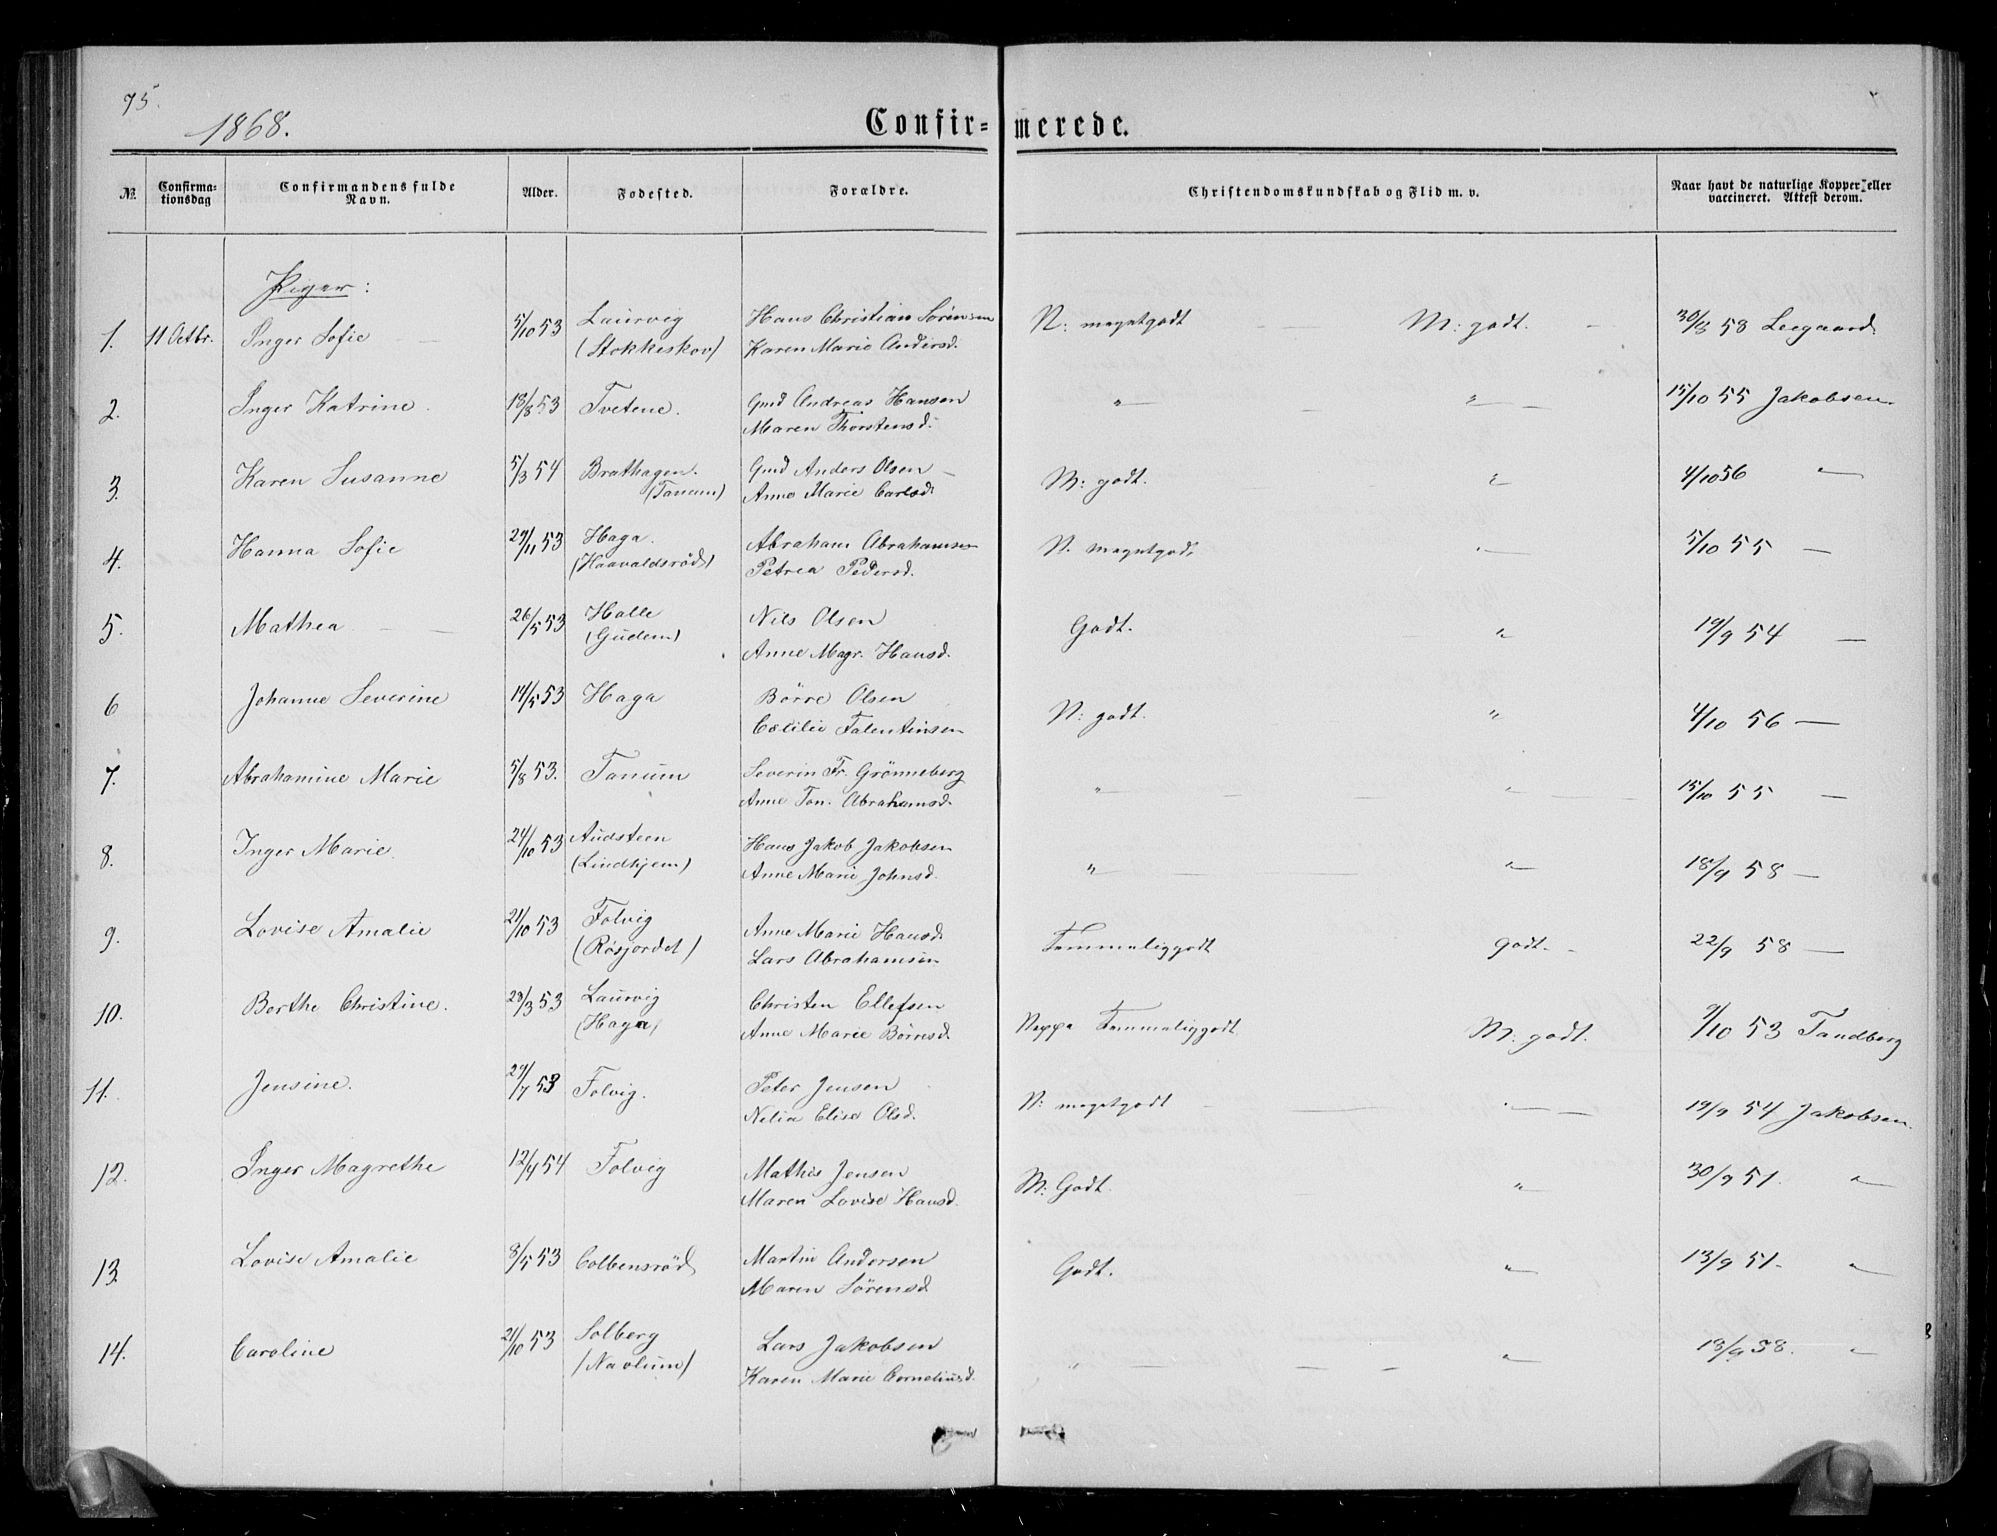 75.
1868.
Confir= merede.
№ Confirma-tionsdag Confirmandens fulde Navn. Alder. Fødested. Forældre. Christendomskundskab og Flid m. v. Naar havt de naturlige Kopper eller vaccineret. Attest derom.
Piger:
1. 11 Octbr. Inger Sofie 5/10 53 Laurvig Hans Christian Sörensen N: megetgodt — M: godt. — 30/8 58 Leegaard.
(Stokkeskov) Karen Marie Andersd.
2. Inger Katrine. 18/8 53 Tvetene. Gmd Andreas Hansen " — " — 15/10 55 Jakobsen.
Maren Thorstensd.
3. Karen Susanne 5/3 54 Brathagen. Gmd Anders Olsen — M: godt. — " 4/10 56 "
(Tanum) Anne Marie Carlsd.
4. Hanna Sofie 29/11 53 Haga. Abraham Abrahamsen N. megetgodt " 5/10 55 —
(Haavaldsröd) Petrea Pedersd.
5. Mathea — — 26/5 53 Halle Nils Olsen Godt. — " 19/9 54 —
(Gudem) Anne Magr. Hansd.
6 Johanne Severine 14/5 53 Haga Börre Olsen N: godt. " 4/10 56 —
Cæcilie Falentinsen
7. Abrahamine Marie 5/8 53. Tanum Severin Fr. Grönneberg " — — " — 15/10 55 —
Anne Ton. Abrahamsd.
8. Inger Marie. 24/10 53 Audsteen Hans Jakob Jakobsen " — — " 18/9 58 —
(Lindhjem) Anne Marie Johnsd.
9. Lovise Amalie 21/10 53 Folvig Anne Marie Hansd. Temmeliggodt godt. — 22/9 58 —
(Rösjordet) Lars Abrahamsen
10. Berthe Christine. 23/3 53 Laurvig Christen Ellefsen Neppe Temmeliggodt M: godt. 9/10 53 Tandberg
(Haga) Anne Marie Börresd.
11. Jensine. 29/7 53 Folvig. Peter Jensen N: megetgodt — " — 19/9 54 Jakobsen.
Nelia Elise Olsd.
12. Inger Magrethe 12/4 54 Folvig Mathis Jensen M: Godt. " 30/9 51. "
Maren Lovise Hansd.
13. Lovise Amalie 8/5 53 Colbensröd Martin Andersen Godt. " 13/9 51. "
Maren Sörensd.
14. Caroline 21/10 53 Solberg Lars Jakobsen " — — — " 18/9 58. "
(Navlum) Karen Marie Corneliusd.